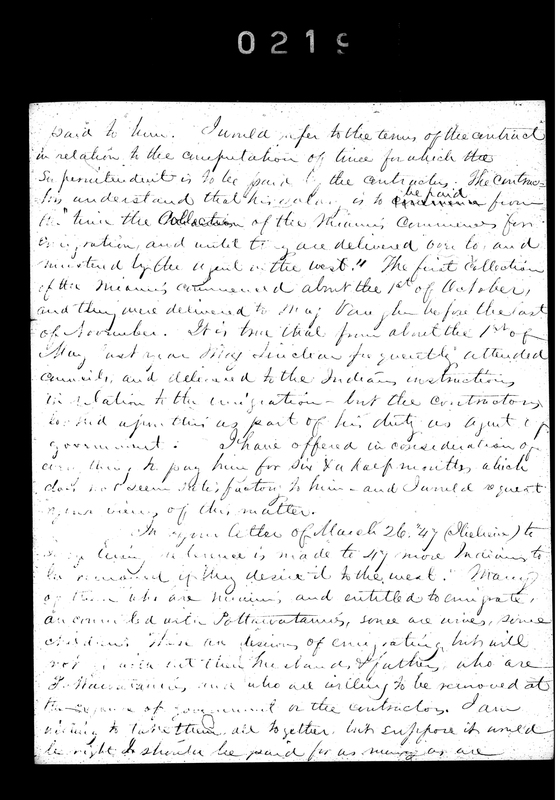 0219
paid to him. I would refer to the terms of the contract
in relation to the computation of time for which the
Superintendent is to be paid by the contractors. The contrac-
tors understand that his salary is to be paid from
the "time the Collection of the Miamis commences for
emigration, and until they are delivered over to, and
mustered by the agent in the west." The first collection
of the Miamis commenced about the 1st of October,
and they were delivered to Maj Vaughn before the last
of November. It is true that from about the 1st of
May last year Maj Sinclear frequently attended
councils, and delivered to the Indians instructions
in relation to the emigration - but the contractors
looked upon this as part of his duty as agent of
government. I have offered in consideration of
every thing to pay him for Six & a half months, which
does not seem satisfactory to him - and I would request
your views of this matter.
In your letter of March 26, '47 (I believe) to
reference is made to 47 more Indians to
be removed if they desire it to the west." Many
of them who are Miamis, and entitled to emigrate,
are connected with Pottawatamies, some are wives, some
children. These are desirous of emigrating, but will
not go without their husbands & fathers, who are
Pottawatamies, and who are willing to be removed at
the expense of government or the contractors. I am
willing to take them all together, but suppose it would
be right I should be paid for as many as are